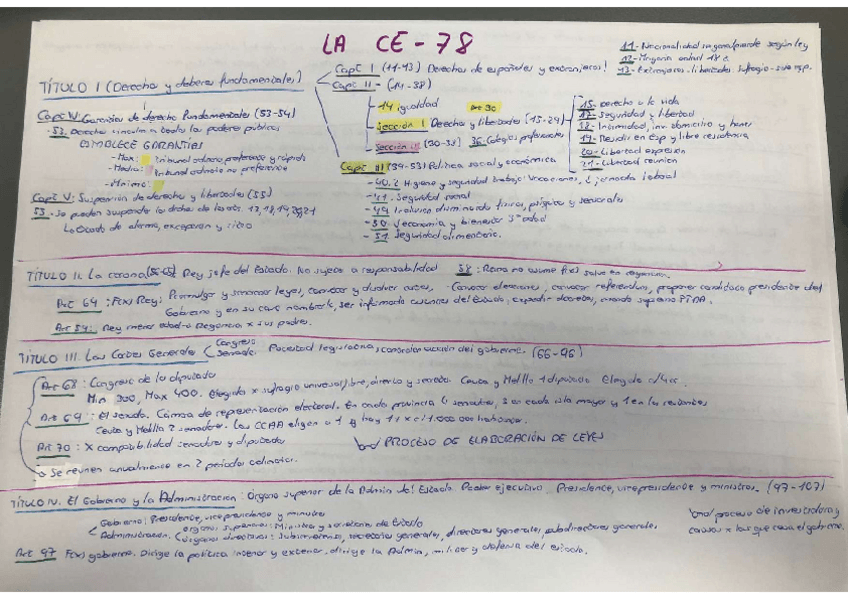 LA CE-78
11- Nacionalidad española pierde según ley
12- Mayoría edad 18 a.
13- Extranjeros - libertades sufragio
TÍTULO I (Derechos y deberes fundamentales)
Capt I (11-13) Derechos de españoles y extranjeros!
Capt II - (14-38)
14 igualdad Art 30
Sección I Derechos y libertades (15-29)
15- derecho a la vida
17- Seguridad y libertad
18- Intimidad, inv. domicilio y honor
19- Residir en Esp y libre residencia
20- Libertad expresión
21- Libertad reunion
Sección II (30-38) 36 Colegios profesionales
Capt III (39-53) Política social y económica
-40.2 Higiene y seguridad trabajo: vacaciones, jornada laboral
-41. Seguridad social
-49 Inclusion disminuidos físicos, psíquicos y sensoriales
-50 economia y bienestar 3ª edad
-51 Seguridad alimentaria.
Capt IV: Garantías de derecho fundamentales (53-54)
53. Derechos vinculan a todos los poderes públicos
ESTABLECE GARANTIAS
-Max: Tribunal ordinario, preferente y rápido
-Media: Tribunal ordinario no preferente
-Mínima:
Capt V: Suspensión de derechos y libertades (55)
55. Se pueden suspender los dchos de los art.
Estado de alarma, excepcion y sitio
TÍTULO II. La corona (56-65) Rey jefe del Estado. No sujeto a responsabilidad 58: Reina no asume f(x) salvo en regencia.
Art 64: F(x) Rey: Promulgar y sancionar leyes, convocar y disolver cortes, -Convocar elecciones, convocar referendum, proponer candidato presidente del
Gobierno y en su caso nombrarle, ser informado del Estado, expedir decretos, mando supremo FFAA.
Art 59: Rey menor edad → Regencia x sus padres.
TÍTULO III. Las Cortes Generales Congreso Senado. Potestad legislativa, controlan acción del gobierno. (66-96)
Art 68: Congreso de los diputados
Min 300, Max 400. Elegidos x sufragio universal, libre, directo y secreto. Ceuta y Melilla 1 diputado. Elegido c/4 a.
Art 69: El senado. Cámara de representación territorial. En cada provincia 4 senadores, 3 en cada isla mayor y 1 en las restantes
Ceuta y Melilla 2 senadores. Las CCAA eligen a 1 y hay 1 x c/1.000.000 habitantes.
Art 70: X compatibilidad senadores y diputados PROCESO DE ELABORACIÓN DE LEYES
Se reúnen anualmente en 2 periodos ordinarios.
TÍTULO IV. El Gobierno y la Administracion: Organo superior de la Admin del Estado. Poder ejecutivo. Presidente, vicepresidente y ministros. (97-107)
Gobierno: Presidente, vicepresidente y ministros
Administración. órganos superiores: Ministros y secretarios de Estado
órganos directivos: Subsecretarios, secretarios generales, directores generales, subdirectores generales
proceso de investidura y
causas x las que cesa el gobierno.
Art 97 F(x) gobierno. Dirige la política interior y exterior, dirige la Admin, militar y defensa del estado.